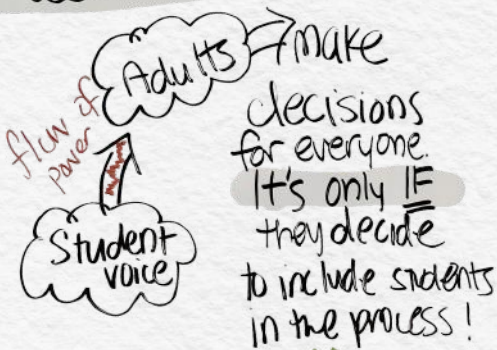 Adults
make
decisions
for everyone.
It's only IF
they decide
to include students
in the process!
flow of
power
Student
voice